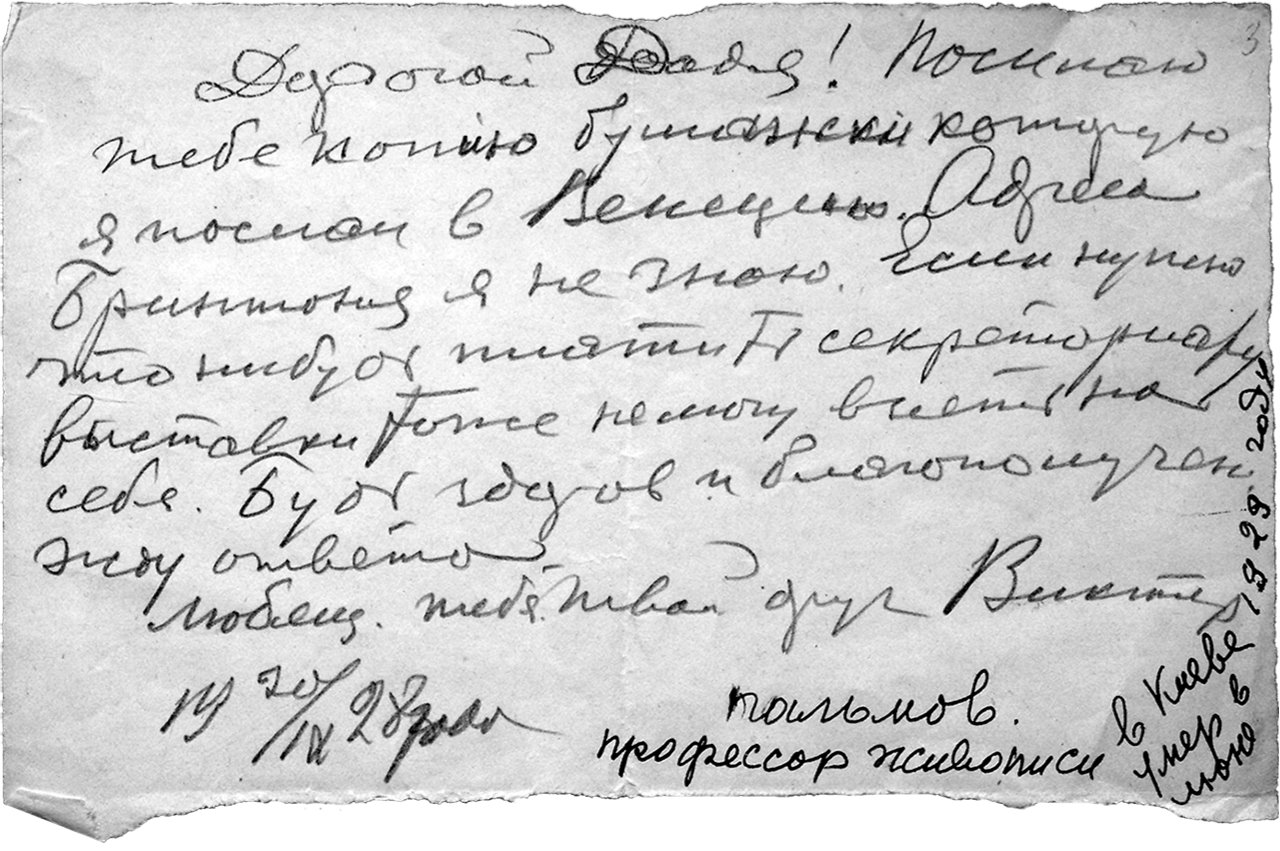 3
Дорогой Додя! Посылаю
тебе копию бумажки которую
я послал в Венецию. Адреса
Бринтона я не знаю. Если нужно
что нибудь платить секретариату
выставки тоже не могу взять на
себя. Будь здоров и благополучен.
жду ответа.
Любящ. тебя. твой друг Виктор
19 20/IX 28 года
пальмов.
профессор живописи
умер в
июле
в Киеве
1929 году